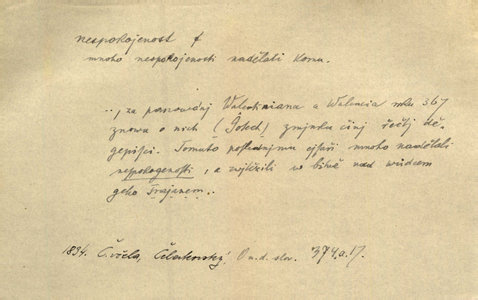 nespokojenost f
mnoho nespokojenosti nadělati komu.
..., za panowánj Walentiniana a Walencia roku 367
znowu o nich (Gotech) zmjnku činj řečtj dě-
gepisci. Tomuto poslednjmu mnoho nadělali
nespokogenosti, a zwjtězili w bitwě nad wůdcem
geho Trajanem...
1834. Č. včela, Čelakovský, O n. d. slov. 374.a.17.